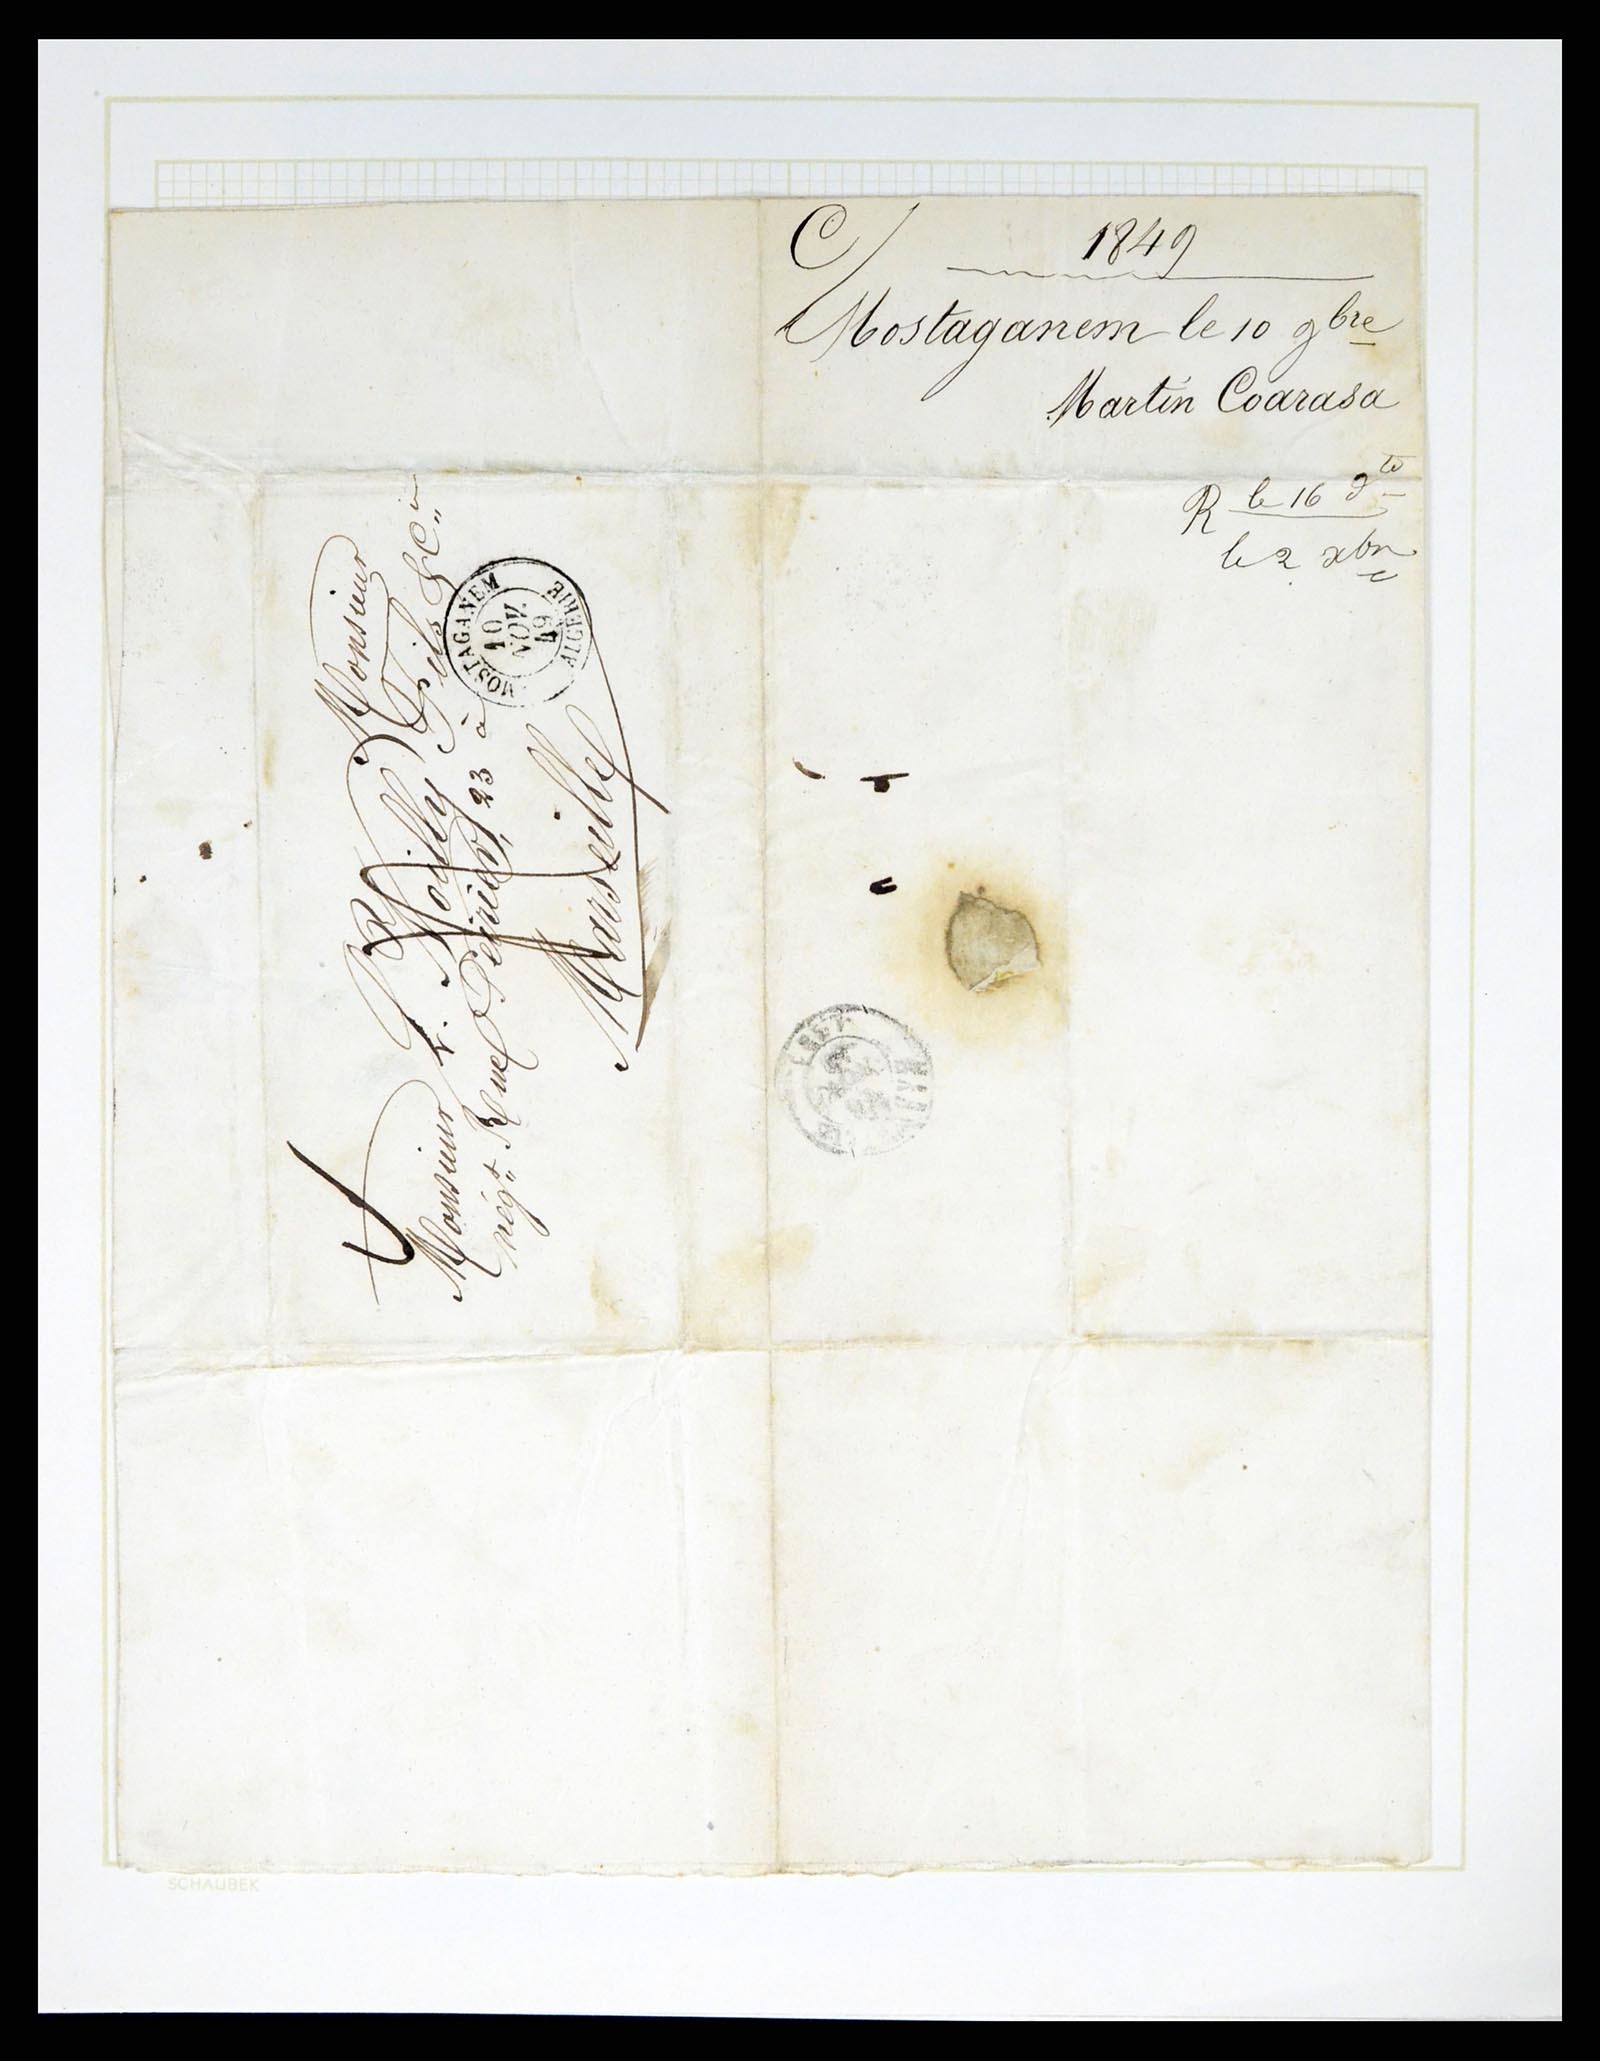 C/ 1849
Mostaganem le 10 9bre
Martin Coarasa
R le 16 dto
le 2 xbre
Monsieur
Monsieur L. Noilly Fils & Cie
négt Rue Perrier, 23 à
Marseille
MOSTAGANEM
10
NOV.
49
ALGÉRIE
SCHAUBEK